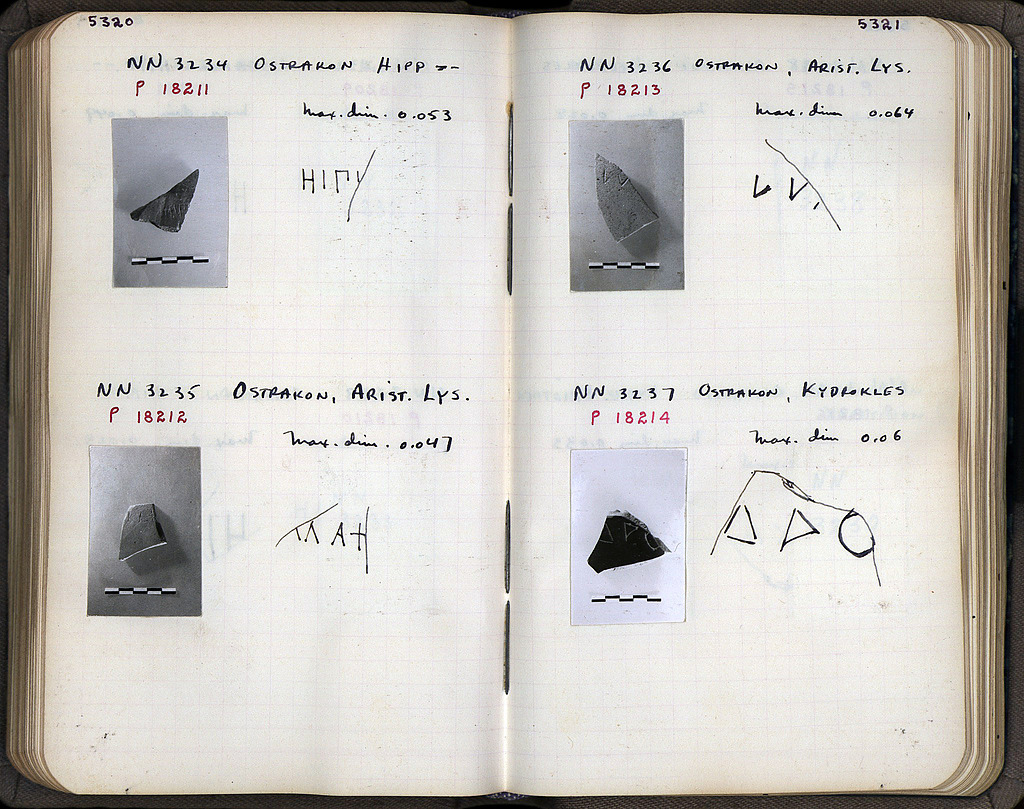 5320
NN 3234 OSTRAKON HIPP =-
P 18211
Max. dim. 0.053
ΗΙΠ
NN 3235 OSTRAKON, ARIST. LYS.
P 18212
Max. dim. 0.047
ΑΗ
5321
NN 3236 OSTRAKON, ARIST. LYS.
P 18213
Max. dim 0.064
NN 3237 OSTRAKON, KYDROKLES
P 18214
Max. dim 0.06
Δ Δ Ο